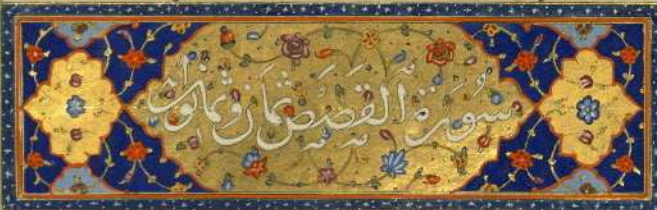 سورة القصص ثمان وثمنون اية